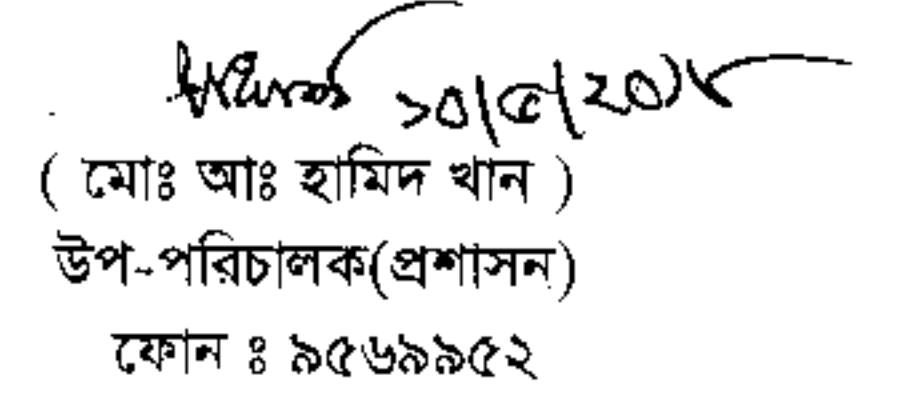 ১০/৫/২০১৮
( মোঃ আঃ হামিদ খান )
উপ-পরিচালক(প্রশাসন)
ফোন ঃ ৯৫৬৯৯৫২